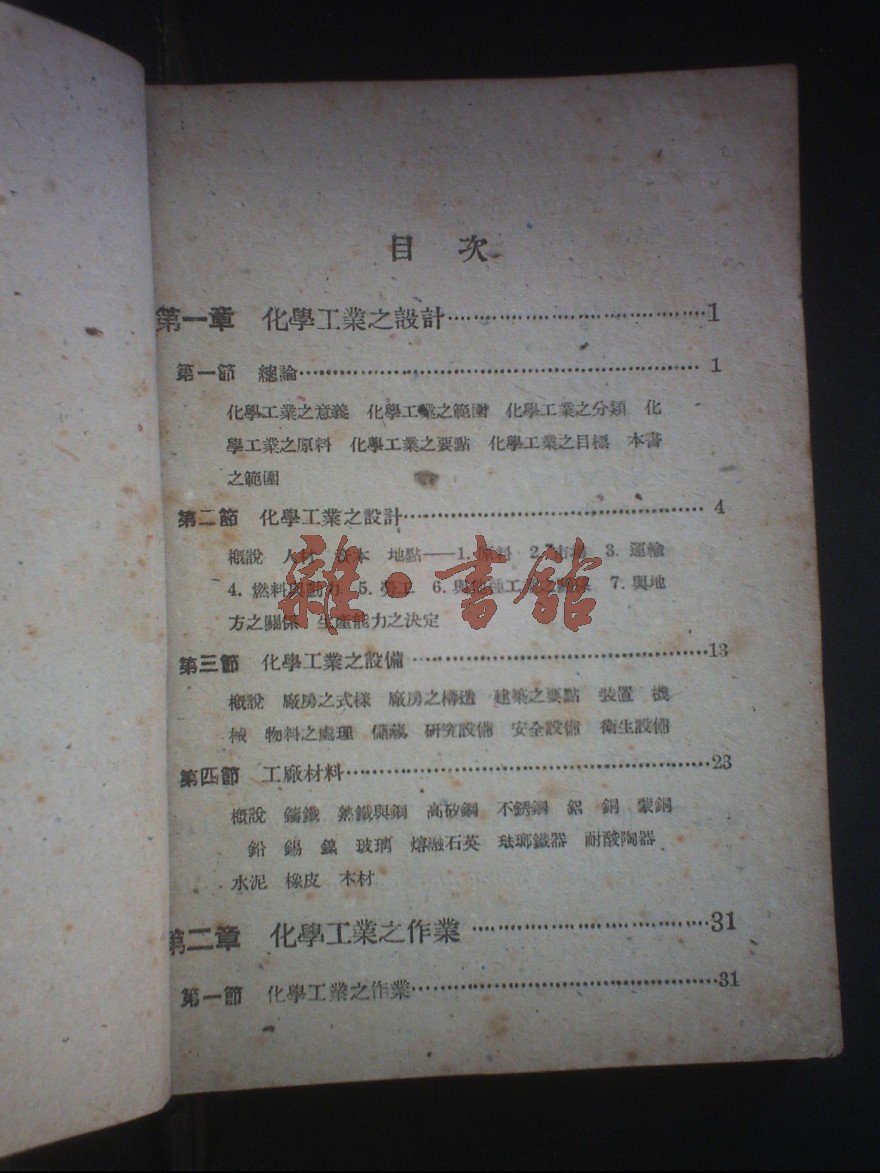 目 次
第一章 化學工業之設計 1
第一節 總論 1
化學工業之意義 化學工業之範圍 化學工業之分類 化
學工業之原料 化學工業之要點 化學工業之目標 本書
之範圍
第二節 化學工業之設計 4
概說 人材 資本 地點——1. 原料 2. 市場 3. 運輸
4. 燃料與動力 5. 勞工 6. 與他種工業之關係 7. 與地
方之關係 生產能力之決定
雜·書館
第三節 化學工業之設備 13
概說 廠房之式樣 廠房之構造 建築之要點 裝置 機
械 物料之處理 儲藏 研究設備 安全設備 衛生設備
第四節 工廠材料 23
概說 鑄鐵 熟鐵與鋼 高矽鋼 不銹鋼 鋁 銅 蒙銅
鉛 錫 鎳 玻璃 熔融石英 琺瑯鐵器 耐酸陶器
水泥 橡皮 木材
第二章 化學工業之作業 31
第一節 化學工業之作業 31